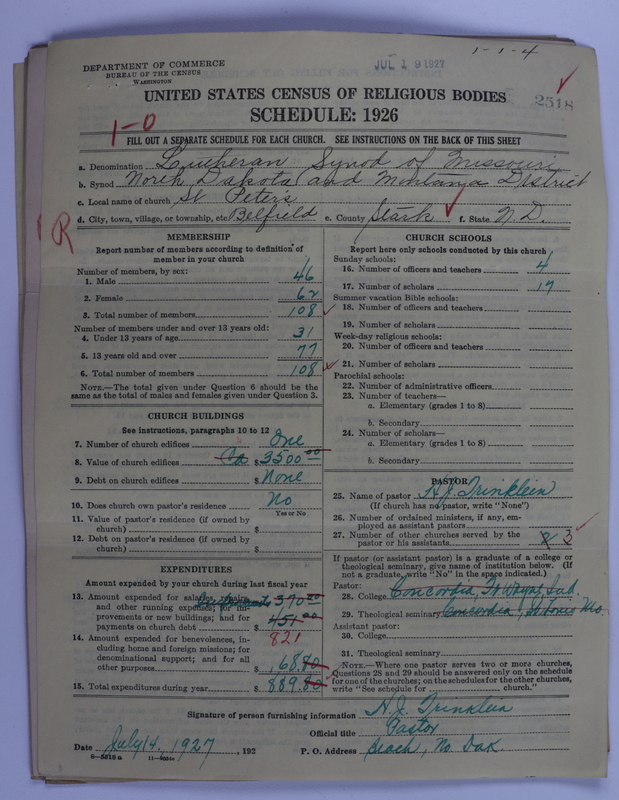 1-1-4
DEPARTMENT OF COMMERCE
BUREAU OF THE CENSUS
WASHINGTON
JUL 19 1927
2518
UNITED STATES CENSUS OF RELIGIOUS BODIES
SCHEDULE: 1926
1-0
FILL OUT A SEPARATE SCHEDULE FOR EACH CHURCH. SEE INSTRUCTIONS ON THE BACK OF THIS SHEET
a. Denomination Lutheran Synod of Missouri
b. Synod North Dakota and Montana District
c. Local name of church St Peter's
d. City, town, village, or township, etc Belfield e. County Stark f. State N.D.
R
MEMBERSHIP
Report number of members according to definition of
member in your church
Number of members, by sex:
1. Male 46
2. Female 62
3. Total number of members 108
Number of members under and over 13 years old:
4. Under 13 years of age 31
5. 13 years old and over 77
6. Total number of members 108
NOTE.—The total given under Question 6 should be
same as the total of males and females given under Question 3.
CHURCH BUILDINGS
See instructions, paragraphs 10 to 12
7. Number of church edifices One
8. Value of church edifices Ca $ 3500.00
9. Debt on church edifices $ None
10. Does church own pastor's residence No
Yes or No
11. Value of pastor's residence (if owned by
church) $
12. Debt on pastor's residence (if owned by
church) $
EXPENDITURES
Amount expended by your church during last fiscal year
13. Amount expended for salaries, repairs 370.00
and other running expenses; for im-
provements or new buildings; and for
payments on church debt $ 451.00
821
14. Amount expended for benevolences, in-
cluding home and foreign missions; for
denominational support; and for all
other purposes $ 68.80
15. Total expenditures during year $ 889.80
CHURCH SCHOOLS
Report here only schools conducted by this church
Sunday schools:
16. Number of officers and teachers 4
17. Number of scholars 17
Summer vacation Bible schools:
18. Number of officers and teachers
19. Number of scholars
Week-day religious schools:
20. Number of officers and teachers
21. Number of scholars
Parochial schools:
22. Number of administrative officers
23. Number of teachers—
a. Elementary (grades 1 to 8)
b. Secondary
24. Number of scholars—
a. Elementary (grades 1 to 8)
b. Secondary
PASTOR
25. Name of pastor H.J. Trinklein
(If church has no pastor, write "None")
26. Number of ordained ministers, if any, em-
ployed as assistant pastors
27. Number of other churches served by the
pastor or his assistants 3
If pastor (or assistant pastor) is a graduate of a college or
theological seminary, give name of institution below. (If
not a graduate, write "No" in the space indicated.)
Pastor:
28. College Concordia, Ft Wayne, Ind.
29. Theological seminary Concordia, St Louis Mo.
Assistant pastor:
30. College
31. Theological seminary
NOTE.—Where one pastor serves two or more churches,
Questions 28 and 29 should be answered only on the schedule
for one of the churches; on the schedules for the other churches,
write "See schedule for church."
Signature of person furnishing information H.J. Trinklein
Official title Pastor
Date July 14, 1927, 192 P. O. Address Beach, No. Dak.
8—5518 a